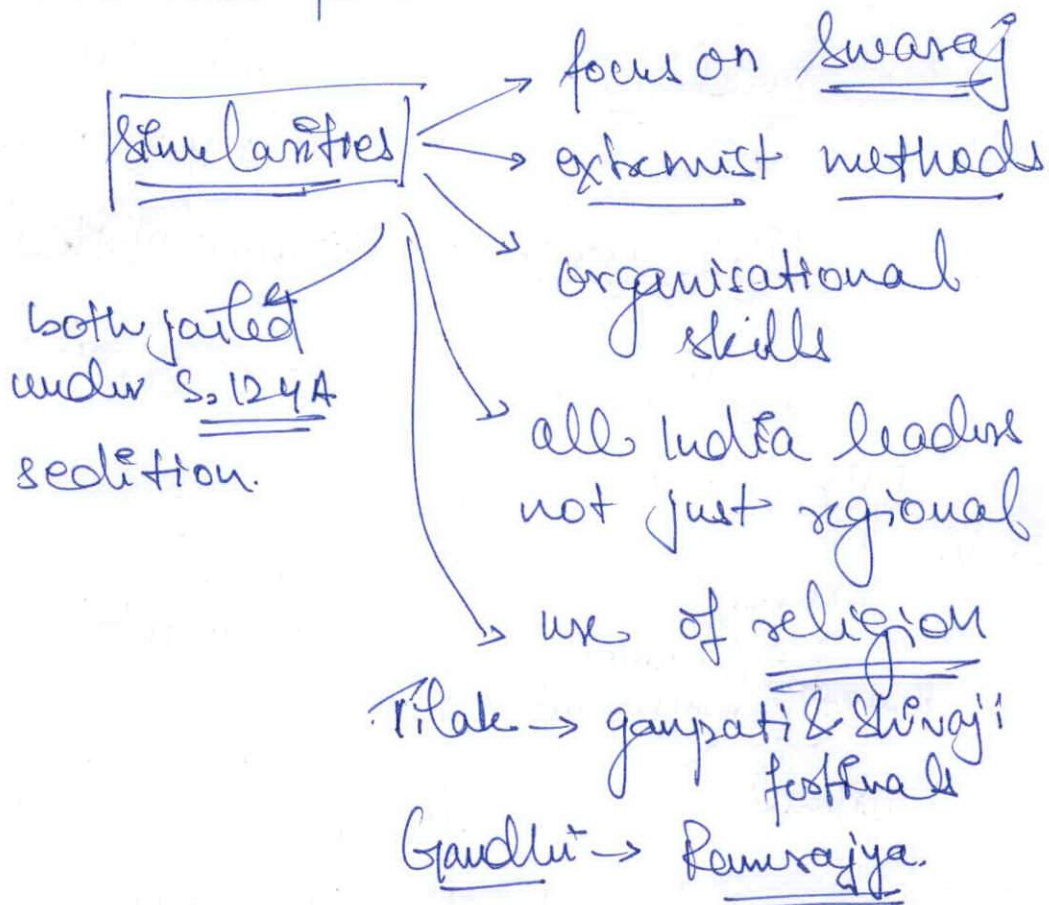 similarities
focus on Swaraj
extremist methods
organisational
skills
both jailed
under S. 124A
sedition.
all India leaders
not just regional
use of religion
Tilak → ganpati & Shivaji
festivals
Gandhi → Ramrajya.